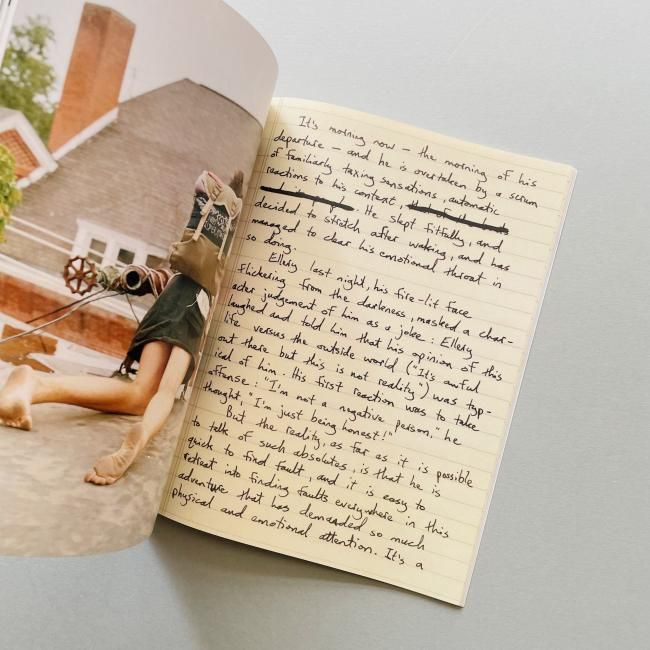 It's morning now — the morning of his
departure — and he is overtaken by a scrum
of familiarly taxing sensations, automatic
reactions to his context,
. He slept fitfully, and
decided to stretch after waking, and has
managed to clear his emotional throat in
so doing.
Ellery last night, his fire-lit face
flickering from the darkness, masked a char-
acter judgement of him as a joke: Ellery
laughed and told him that his opinion of this
life versus the outside world ("It's awful
out there but this is not reality") was typ-
ical of him. His first reaction was to take
offense: "I'm not a negative person," he
thought, "I'm just being honest!"
But the reality, as far as it is possible
to talk of such absolutes, is that he is
quick to find fault, and it is easy to
retreat into finding faults everywhere in this
adventure that has demanded so much
physical and emotional attention. It's a